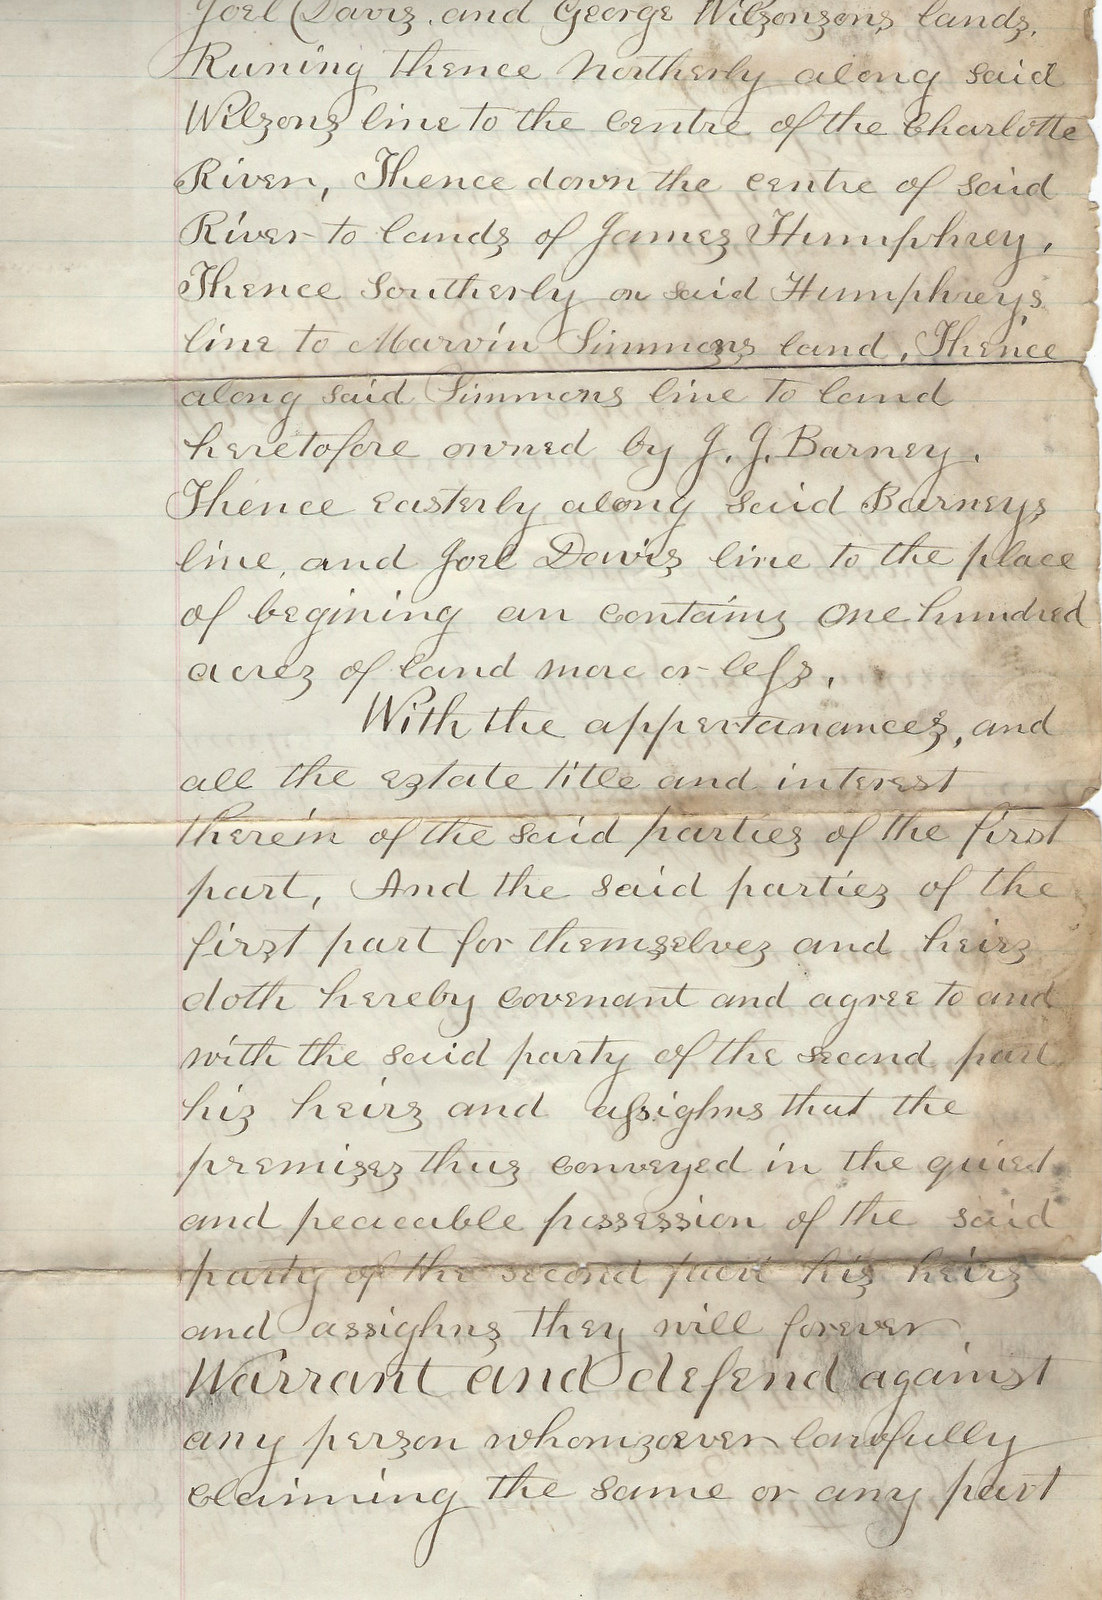 Joel Davis, and George Wilsonsons lands,
Runing thence Northerly along said
Wilsons line to the Centre of the Charlotte
River, Thence down the centre of said
River to lands of James Humphrey,
Thence Southerly on said Humphreys
line to Marvin Simmons land, Thence
along said Simmons line to land
heretofore owned by J. J. Barney,
Thence easterly along said Barneys
line, and Joel Davis line to the place
of begining an contains One hundred
acres of land more or less,
With the appertanances, and
all the estate title and interest
therein of the said parties of the first
part, And the said parties of the
first part for themselves and heirs
doth hereby covenant and agree to and
with the said party of the second part
his heirs and assighns that the
premises thus conveyed in the quiet
and peaceable possession of the said
party of the second part his heirs
and assighns they will forever
Warrant and defend against
any person whomsoever lawfully
claiming the same or any part